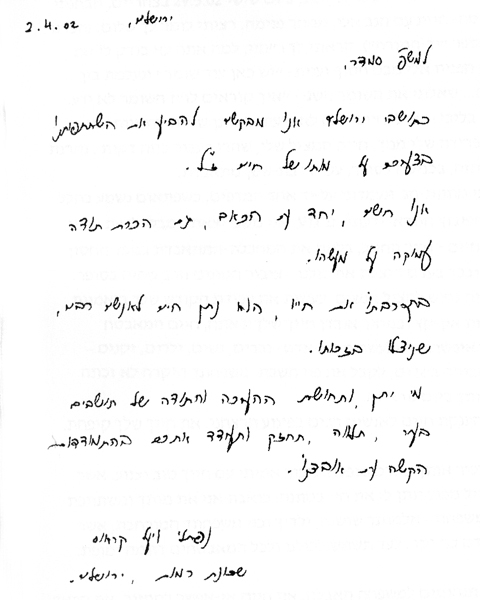 ירושלים, 2.4.02
למשפ' סמדר,
כתושבי ירושלים אנו מבקשים להביע את השתתפותנו
בצערכם על מותו של חיים ז"ל.
אנו חשים, יחד עם הכאב, גם הכרת תודה
עמוקה על מעשהו.
בהקרבתו את חייו, הוא נתן חיים לאנשים רבים,
שניצלו בזכותו.
מי יתן, ותחושת ההערכה והתודה של תושבים
בעיר, תלווה, תחזק ותעודד אתכם בהתמודדות
הקשה עם אובדנו.
נפתלי ויעל קראוס
שכונת רמות, ירושלים.